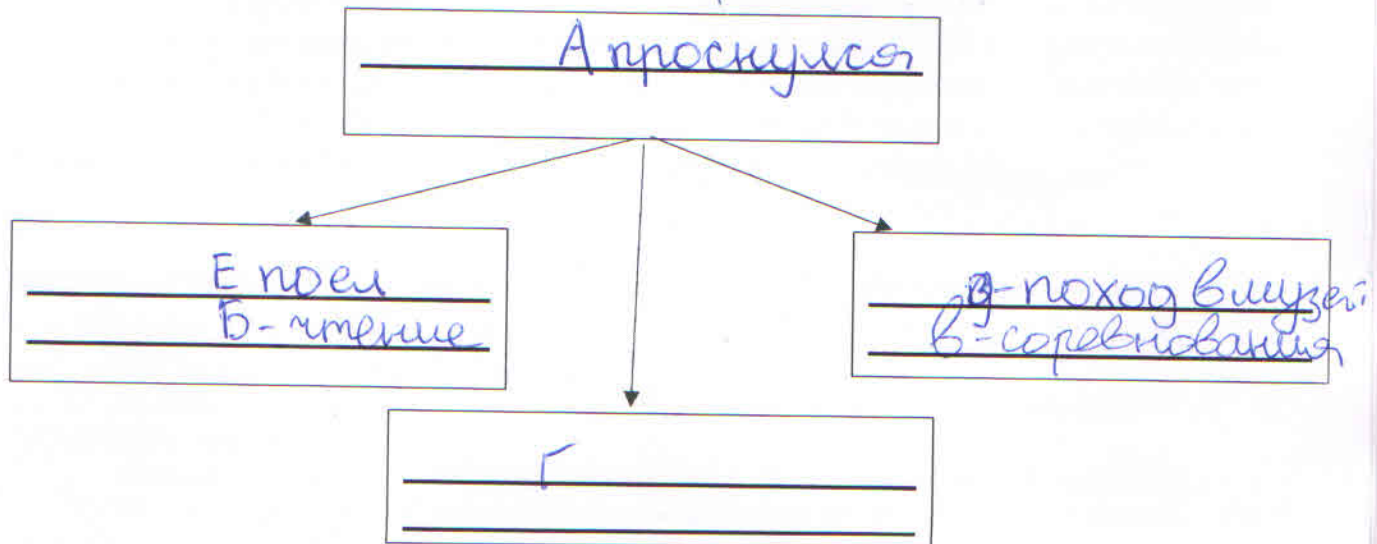 А проснулся
Е поел
Б-чтение
Д-поход в музей
В-соревнования
Г